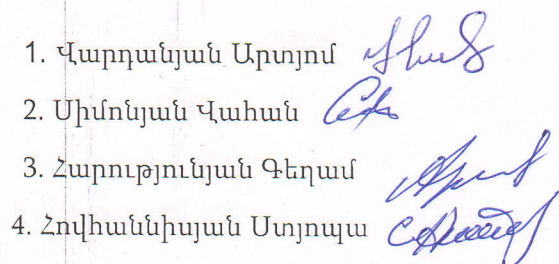 1. Վարդանյան Արտյոմ
2. Սիմոնյան Վահան
3. Հարությունյան Գեղամ
4. Հովհաննիսյան Ստյոպա